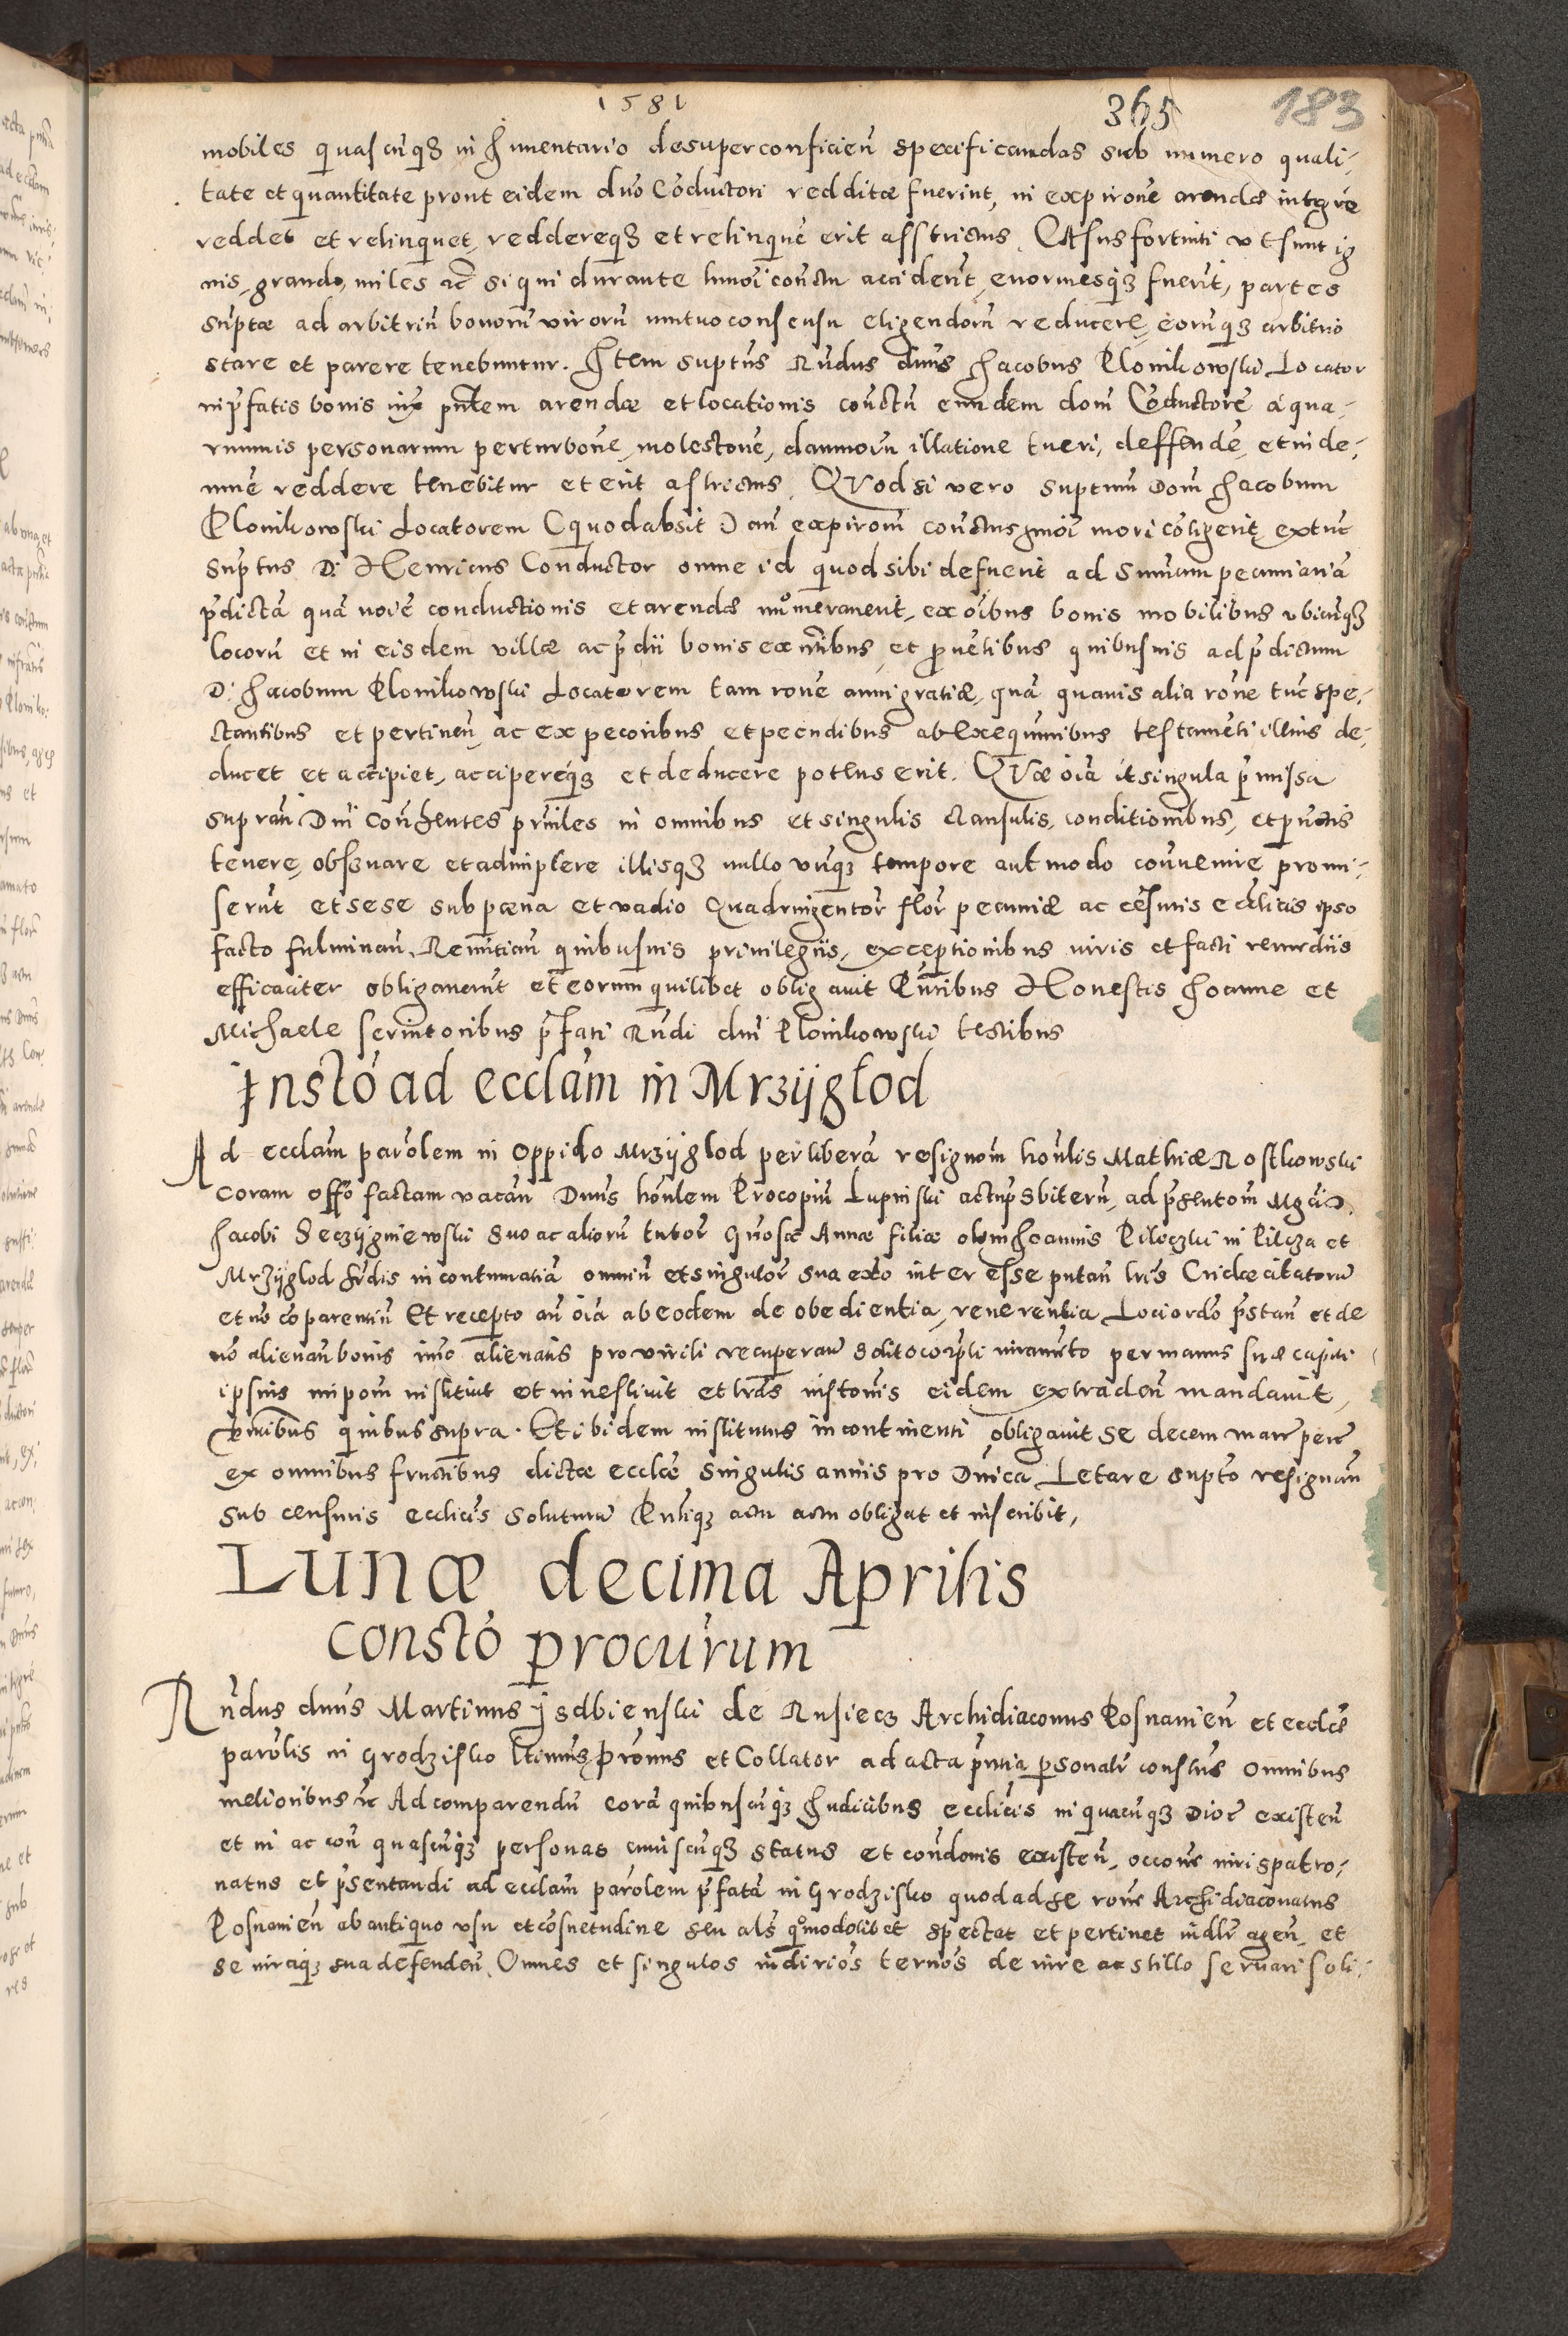 1581
365
183
mobiles quascunq3 in Inuentario desuper conficien̄ specificandas sub numero quali-
tate et quantitate prout eidem dn̄o Cōductori redditæ fuerint, in expirōne arendæ integrè
reddet et relinquet, reddereq3 et relinquē erit asstrictus. CAsus fortuiti vt sunt ig
nis, grando, miles ac̄ si qui durante hmōi con̄ctu acciderīt, enormesq3 fuerīt, partes
sup̄tæ ad arbitriū bonorū virorū mutuo consensu eligendorū reducerē, eorūq3 arbitrio
stare et parere tenebuntur. Item sup̄tus Rn̄dus dn̄us Jacobus Plonikowski Locator
in p̄fatis bonis iux̄ pn̄tem arendæ et locationis con̄ctū eundem dom̄ Cōductorē à qua-
rumuis personarum perturbōne, molestōne, damnorū illatione tueri, deffendē, et inde-
mnē reddere tenebitur et erit astrictus. QVod si vero sup̄tum Dom̄ Jacobum
Plonikowski Locatorem (quod absit) an̄ expirōm̄ con̄ctus hmōi mori cōtigerit, extūc
Sup̄tus D: Henricus Conductor omne id quod sibi defuerit ad Sum̄am pecuniariā
p̄dictā quā noīe conductionis et arendæ numerauerit, ex oībus bonis mobilibus vbicunq3
locorū et in eisdem villæ ac p̄dii bonis exn̄tibus, et prouētibus quibusuis ad p̄dictum
D: Jacobum Plonikowski Locatorem tam rōne anni gratiæ, quā quauis alia rōne tūc spe-
ctantibus et pertinen̄, ac ex pecoribus et pecudibus ab exequutoribus testamēti illius de-
ducet et accipiet, accipereq3 et deducere potens erit. QVæ oīa et singula p̄missa
supran̄ Dn̄i Con̄hentes prn̄cipales in omnibus et singulis clausulis, conditionibus, et pūctis
tenere, obseruare et adimplere illisq3 nullo vnq3 tempore aut modo conuenire promi-
serūt et sese sub pœna et vadio Quadringentor̄ flor̄ pecuniæ ac cēsuris ecclicis ipso
facto fulminan̄. Renūtian̄ quibusuis priuilegiis, exceptionibus iuris et facti remediis
efficaciter obligauerūt et eorum quilibet obligauit Pn̄tibus Honestis Joanne et
Michaele seruitoribus p̄fati Rn̄di dn̄i Plonikowski testibus
Instō ad ecclām in Mrzÿgłod
Ad ecclām parōlem in Oppido Mrzÿglod per liberā resignōm̄ hon̄lis Mathiæ Rostkowski
coram offō factam vacan̄ Dn̄us hon̄lem Procopiū Lupinski actū p̄sbiterū, ad p̄sentōm̄ Mgcī D.
Jacobi Seczÿgniewski suo ac aliorū tutor̄ Gn̄osæ Annæ filiæ olim Joannis Pileczki in Pilcza et
Mrzÿglod hrdis in contumatiā omniū et singulor̄ sua exto interesse putan̄ lr̄is Cridæ citatorū
et nō cōparentiū Et recepto an̄ oīa ab eodem de obedientia, reuerentia Loci ordō p̄stan̄ et de
nō alienan̄ bonis imò alienatis pro virili recuperan̄ solito corpl̄i iuramēto per manus suæ capiti
ipsius impom̄ instituit et inuestiuit et lrās instōnis eidem extraden̄ mandauit,
Pn̄tibus quibus supra. Et ibidem institutus in continenti obligauit se decem mar̄ pec̄
ex omnibus fructibus dictæ ecclæ singulis annis pro Dn̄ica Letare supto resignan̄
sub censuris ecclicis soluturū Pn̄tiq3 actu actu obligat et inscribit,
Lunæ decima Aprilis
Constō procurum
Rn̄dus dn̄us Martinus Jsdbienski de Rusiecz Archidiaconus Posnanien̄ et ecclæ
parōlis in Grodzisko ltimus Prōnus et Collator ad acta p̄ntia psonalr̄ constūs Omnibus
melioribus ac̄ Ad comparendū corā quibuscūq3 Judicibus ecclicis in quacūq3 Dioc̄ existen̄
et in ac con̄ quascūq3 personas cuiuscūq3 status et condōnis existen̄, occone iuris patro-
natus et p̄sentandi ad ecclam parōlem p̄fatā in Grodzisko quod ad se rōne Archidiaconatus
Posnanien̄ ab antiquo vsu et cōsuetudine seu als̄ quomodolibet spectat et pertinet iudlr̄ agen̄, et
se iuraq3 sua defenden̄. Omnes et singulos iudiriōs ternōs de iure ac stillo seruari soli-